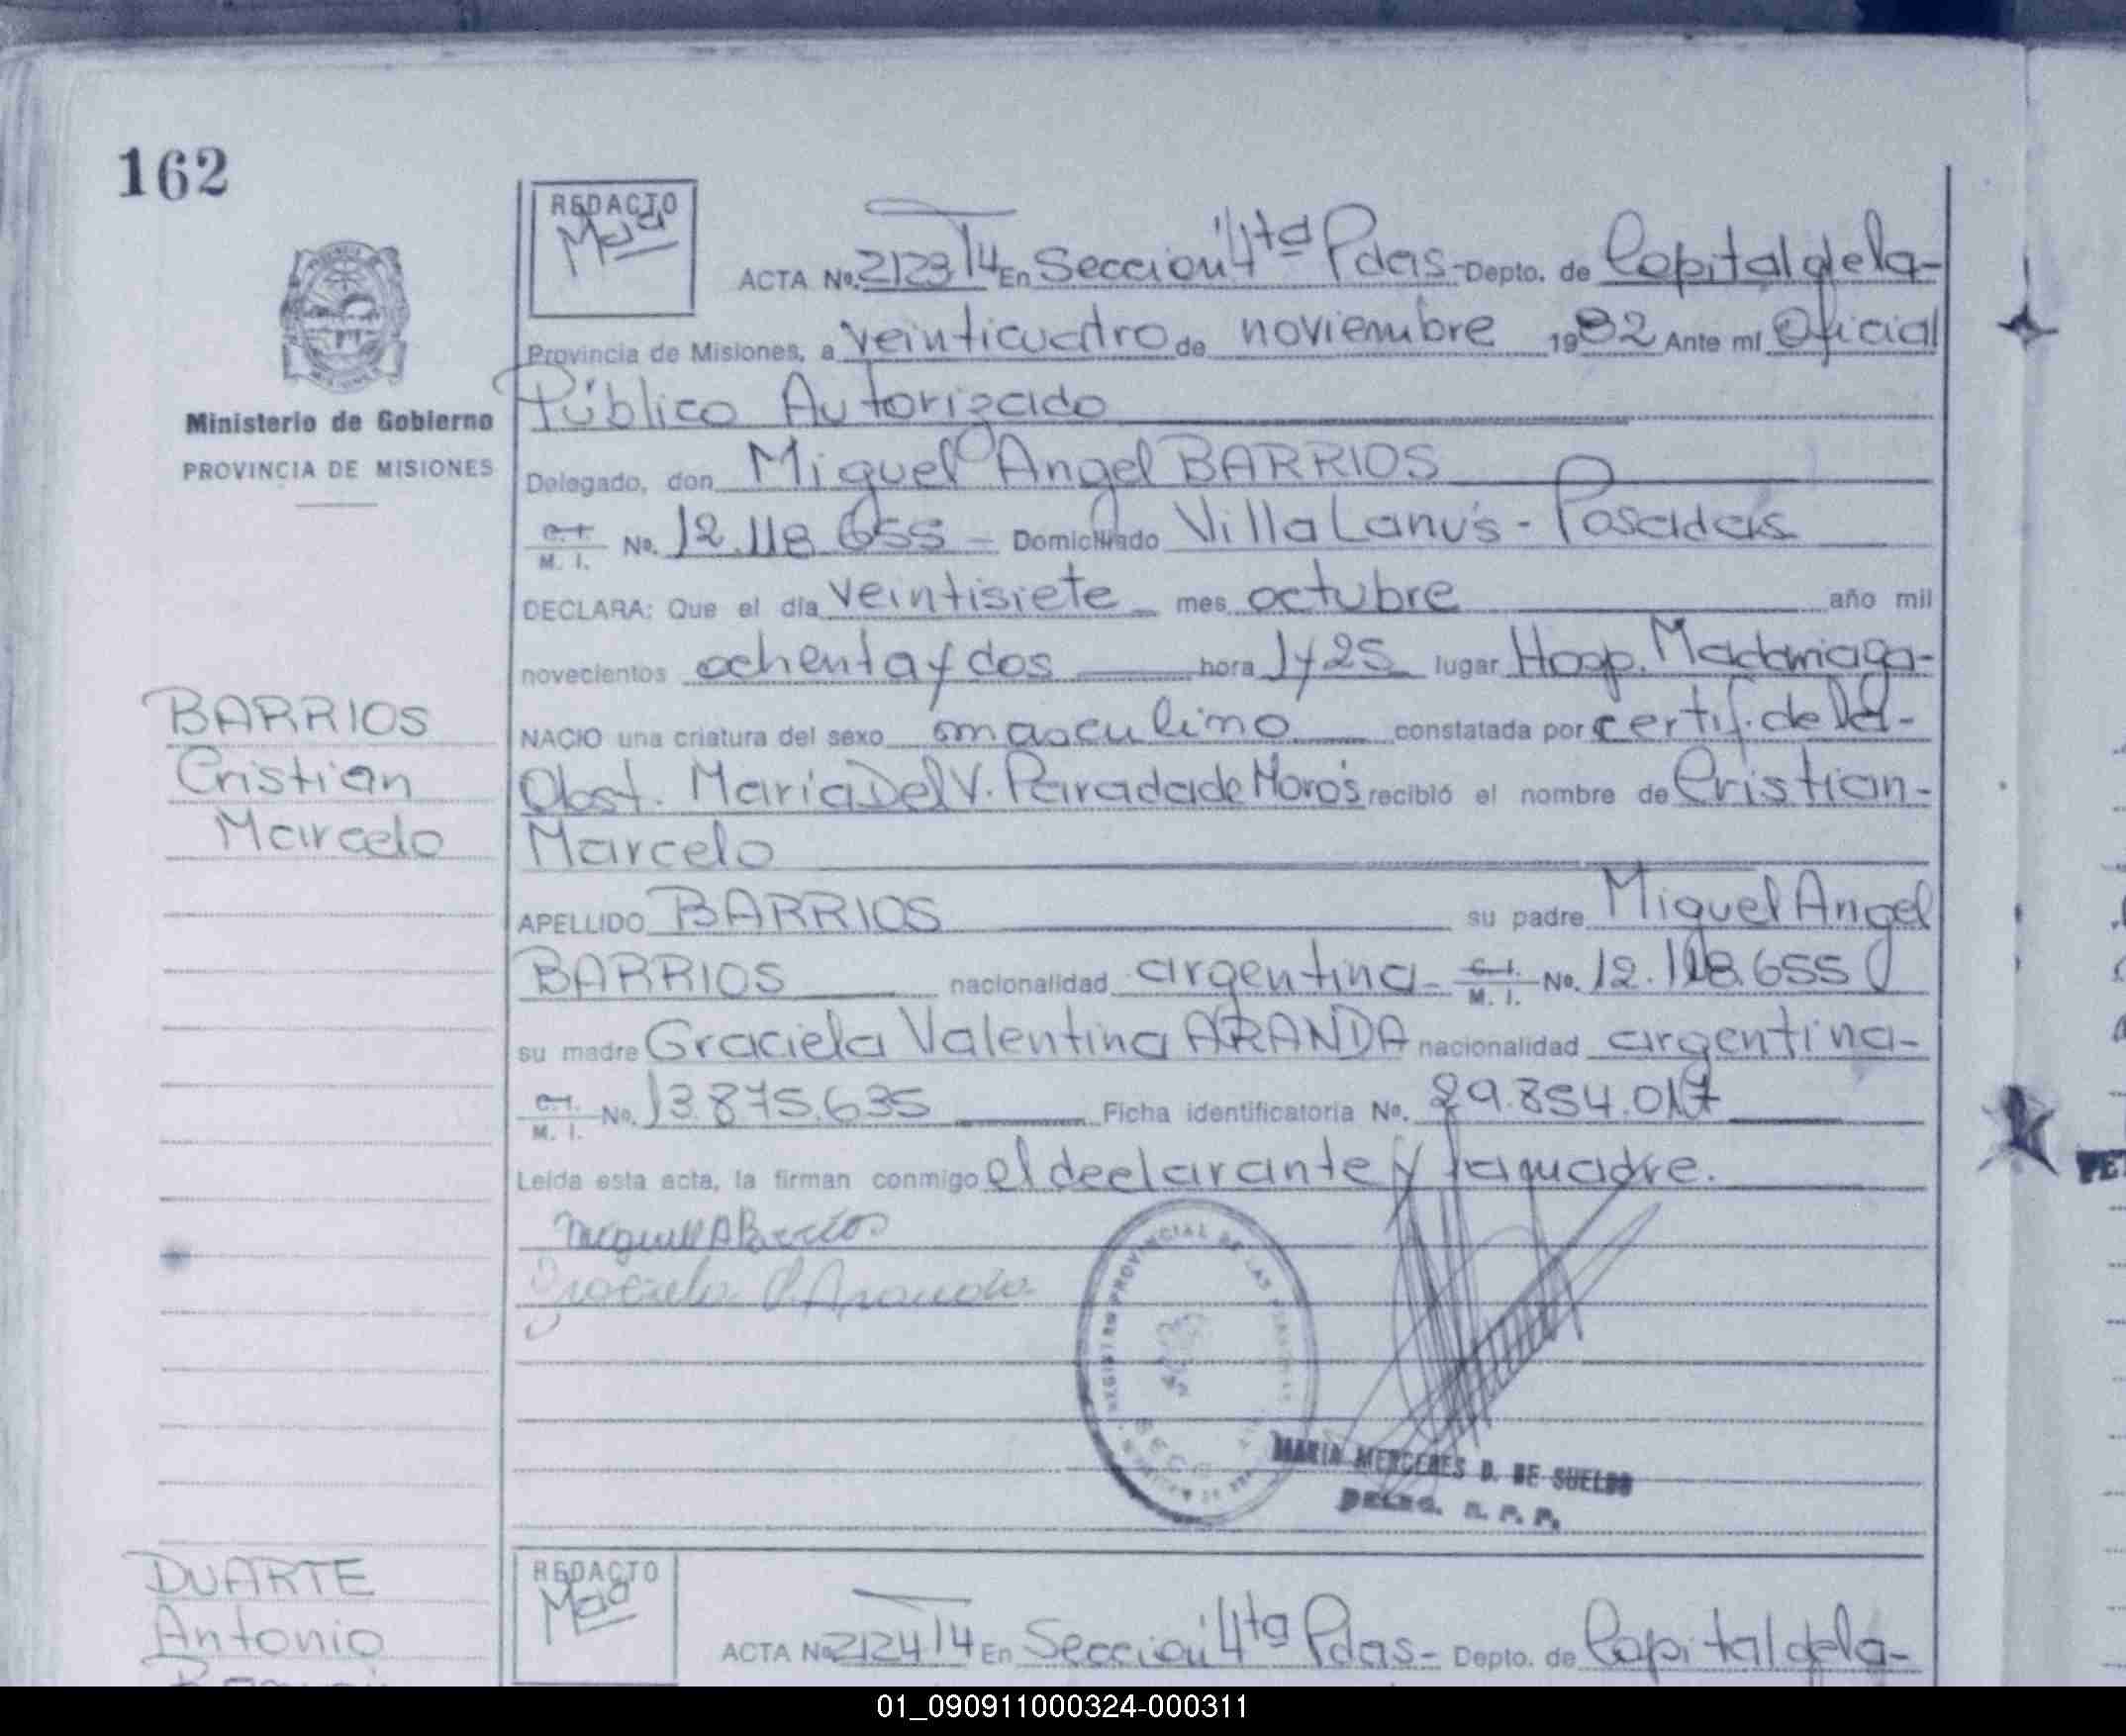 162
REDACTO
ACTA No. 2123 T4 En Sección 4ta Pdas - Depto. de Capital de la -
Provincia de Misiones, a veinticuatro de noviembre 1982 Ante mí Oficial
Público Autorizado
Ministerio de Gobierno
PROVINCIA DE MISIONES
Delegado, don Miguel Angel BARRIOS
C. I. M. I. No. 12.118.655 - Domiciliado Villa Lanús - Posadas
DECLARA: Que el día veintisiete mes octubre año mil
novecientos ochenta y dos hora 1 y 25 lugar Hosp. Madariaga -
NACIO una criatura del sexo masculino constatada por certif. de la -
Obst. María Del V. Parada de Moros recibió el nombre de Cristian -
Marcelo
BARRIOS
Cristian
Marcelo
APELLIDO BARRIOS su padre Miguel Angel
BARRIOS nacionalidad argentina - C. I. M. I. No. 12.118.655
su madre Graciela Valentina ARANDA nacionalidad argentina -
C. I. M. I. No. 13.875.635 Ficha identificatoria No. 29.854.017
Leída esta acta, la firman conmigo el declarante y la madre.
Miguel A Barrios
Graciela V. Aranda
REGISTRO PROVINCIAL DE LAS PERSONAS
MARIA MERCEDES D. DE SUELDO
DELEG. R. P. P.
DUARTE
Antonio
REDACTO
ACTA No 2124 T4 En Sección 4ta Pdas - Depto. de Capital de la -
01_090911000324-000311